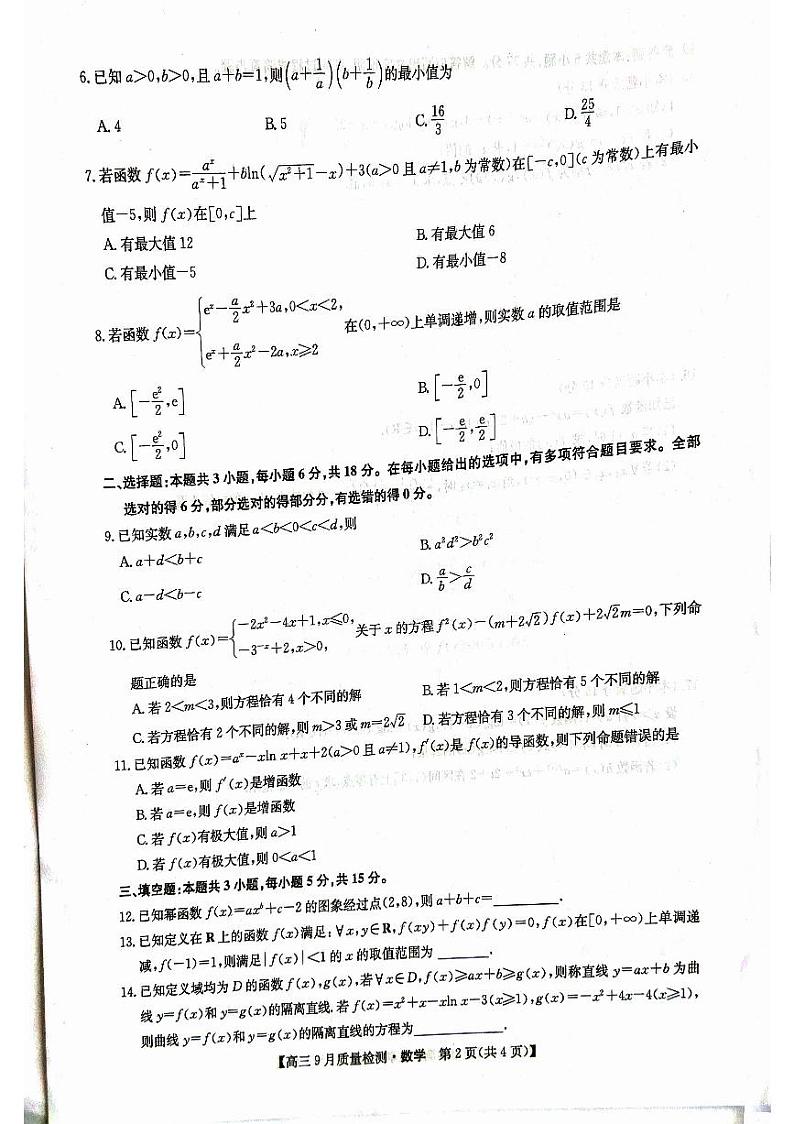 6.已知 a>0,b>0,且 a+b=1,则(a+1/a)(b+1/b)的最小值为
A.4 B.5 C.16/3 D.25/4
7.若函数 f(x)=aˣ/(aˣ+1)+bln(√(x²+1)-x)+3(a>0 且 a≠1,b 为常数)在[-c,0](c 为常数)上有最小
值-5,则 f(x)在[0,c]上
A.有最大值 12 B.有最大值 6
C.有最小值-5 D.有最小值-8
8.若函数 f(x)={eˣ-a/2x²+3a,0<x<2, eˣ+a/2x²-2a,x≥2 在(0,+∞)上单调递增,则实数 a 的取值范围是
A.[-e²/2,e] B.[-e/2,0]
C.[-e²/2,0] D.[-e/2,e/2]
二、选择题:本题共 3 小题,每小题 6 分,共 18 分。在每小题给出的选项中,有多项符合题目要求。全部
选对的得 6 分,部分选对的得部分分,有选错的得 0 分。
9.已知实数 a,b,c,d 满足 a<b<0<c<d,则
A.a+d<b+c B.a²d²>b²c²
C.a-d<b-c D.a/b>c/d
10.已知函数 f(x)={-2x²-4x+1,x≤0, -3⁻ˣ+2,x>0, 关于 x 的方程 f²(x)-(m+2√2)f(x)+2√2m=0,下列命
题正确的是
A.若 2<m<3,则方程恰有 4 个不同的解 B.若 1<m<2,则方程恰有 5 个不同的解
C.若方程恰有 2 个不同的解,则 m>3 或 m=2√2 D.若方程恰有 3 个不同的解,则 m≤1
11.已知函数 f(x)=aˣ-xln x+x+2(a>0 且 a≠1),f′(x)是 f(x)的导函数,则下列命题错误的是
A.若 a=e,则 f′(x)是增函数
B.若 a=e,则 f(x)是增函数
C.若 f(x)有极大值,则 a>1
D.若 f(x)有极大值,则 0<a<1
三、填空题:本题共 3 小题,每小题 5 分,共 15 分。
12.已知幂函数 f(x)=axᵇ+c-2 的图象经过点(2,8),则 a+b+c=________.
13.已知定义在 R 上的函数 f(x)满足:∀x,y∈R,f(xy)+f(x)f(y)=0,f(x)在[0,+∞)上单调递
减,f(-1)=1,则满足|f(x)|<1 的 x 的取值范围为________.
14.已知定义域均为 D 的函数 f(x),g(x),若∀x∈D,f(x)≥ax+b≥g(x),则称直线 y=ax+b 为曲
线 y=f(x)和 y=g(x)的隔离直线.若 f(x)=x²+x-xln x-3(x≥1),g(x)=-x²+4x-4(x≥1),
则曲线 y=f(x)和 y=g(x)的隔离直线的方程为________.
【高三 9 月质量检测·数学 第 2 页(共 4 页)】